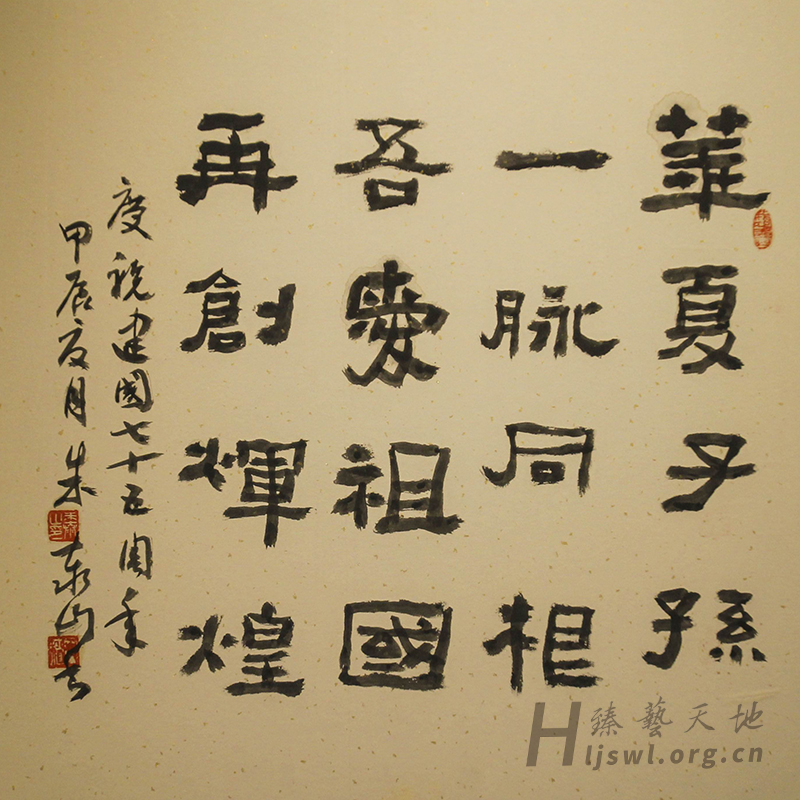 華夏子孫
一脉同相
吾愛祖國
再創輝煌
慶祝建國七十五周年
甲辰夏月朱泰山书
臻藝天地
Hljswl.org.cn